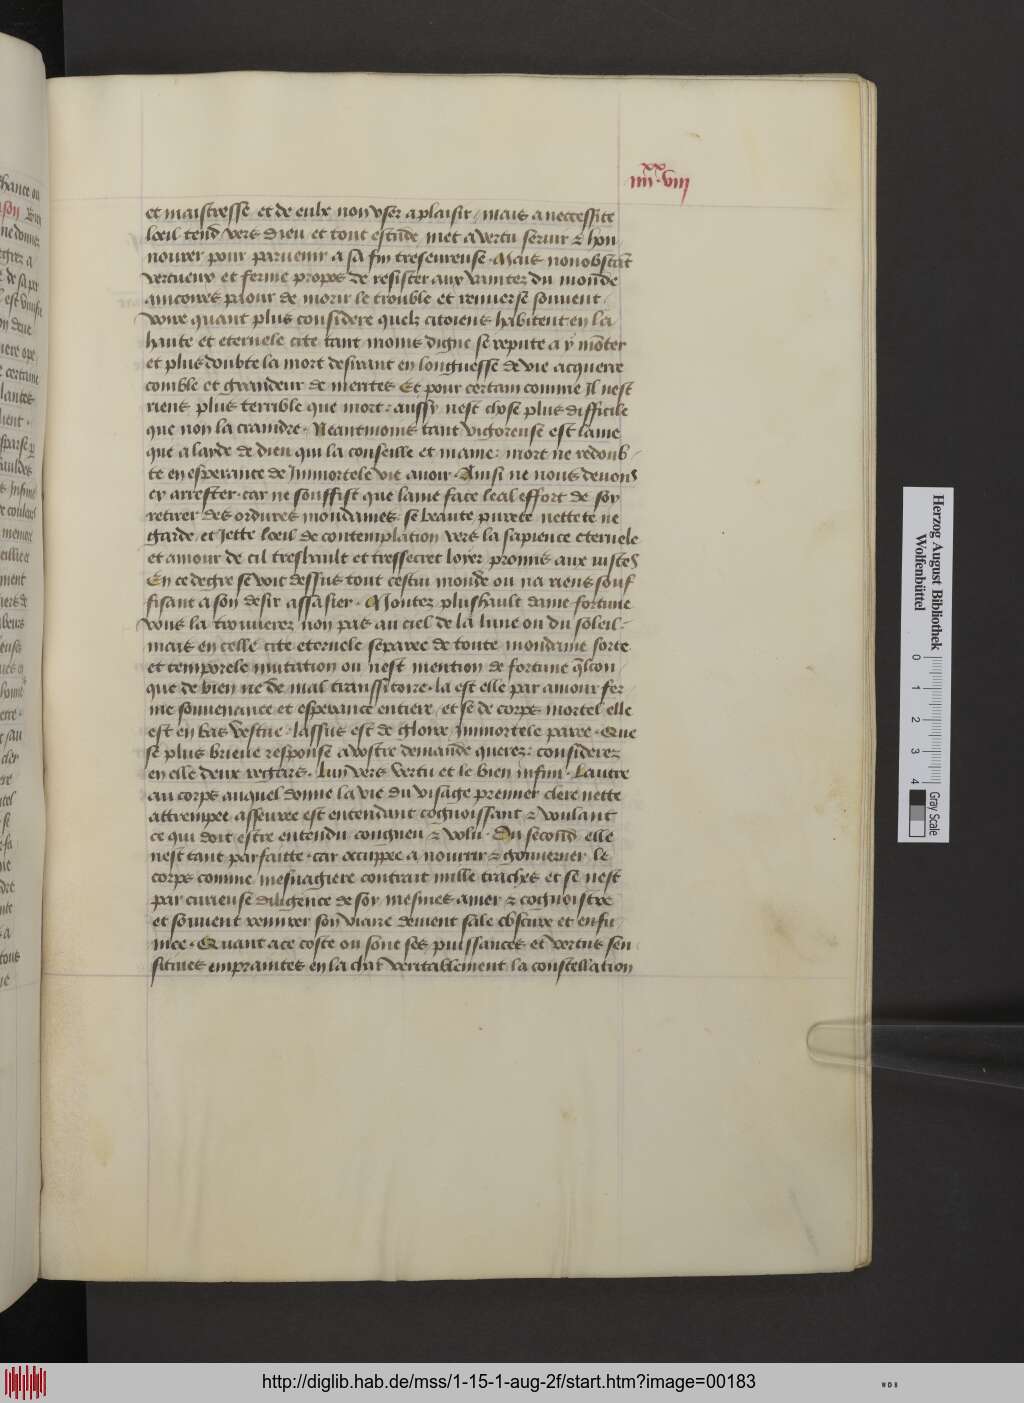 xx
iiii . viii
et maistresse et de eulx non vser a plaisir / mais a neccessite
loeil tend vers dieu et tout estude met a vertu seruir & hon
nourer pour paruenir a sa fin treseureuse . Mais nonobstāt
vertueux et ferme propos de resister aux vanitez du monde
ancores paour de morir le trouble et renuerse souuent .
voire quant plus considere quelz citoiens habitent en la
haute et eternele cite tant moins digne se repute a y mōter
et plus doubte la mort desirant en longuesse de vie acquerre
comble et grandeur de merites Et pour certain comme Il nest
riens plus terrible que mort : aussy nest chose plus difficile
que non la craindre . Neantmoins tant vigoreuse est lame
que a layde de dieu qui la conseille et maine : mort ne redoub
te en esperance de Immortele vie auoir . Ainsi ne nous deuons
cy arrester . car ne souffist que lame face leal effort de soy
retirer des ordures mondaines . se beaute purete nettete ne
garde . et Jette loeil de contemplation vers la sapience eternele
et amour de cil treshault et tressecret loyer promis aux iustes
En ce degre se voit dessus tout cestui monde ou na riens souf
fisant a son desir assasier . Montez plushault dame fortune
vous la trouuerez non pas au ciel de la lune ou du soleil .
mais en celle cite eternele separee de toute mondaine sorte
et temporele mutation ou nest mention de fortune q̄lcon
que de bien ne de mal transsitoire . la est elle par amour fer
me souuenance et esperance entiere / et se de corps mortel elle
est en bas vestue . lassus est de gloire Jmmortele paree . Que
se plus brieue response a vostre demande querez : considerez
en elle deux regars . lun vers vertu et le bien infini . lautre
au corps auquel donne la vie du visage premier clere nette
attrempee asseuree est entendant cognoissant & voulant
ce qui doit estre entendu congneu & volu . Du second elle
nest tant parfaitte . car occuppee a nourrir & gouuerner le
corps comme mesnagiere contrait mille traches et se nest
par curieuse diligence de soy mesmes amer & cognoistre
et souuent remirer son viaire deuient sale obscure et enfu
mee . Quant a ce coste ou sont ses puissances et vertus sen
sitiues empraintes en la char veritablement la constellation
Herzog August Bibliothek
Wolfenbüttel
0 1 2 3 4
Gray Scale
http://diglib.hab.de/mss/1-15-1-aug-2f/start.htm?image=00183